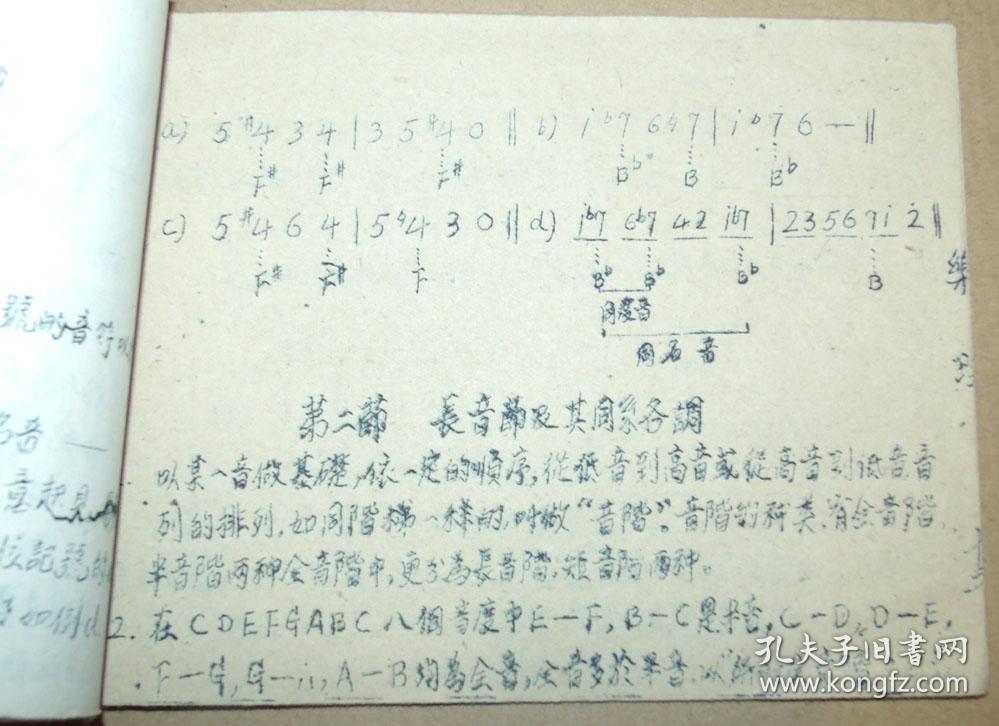 a) 5 #4 3 4 | 3 5 #4 0 ‖ b) i b7 6 ♮7 | i b7 6 — ‖
F# F# F# Bb B Bb
c) 5 #4 6 4 | 5 ♮4 3 0 ‖ d) ib7 6b7 42 ib7 | 23 56 7i 2 ‖
F# F# F Bb Bb Bb B
同度音
同名音
第二節 長音階及其同系各調
以某一音做基礎，依一定的順序，從低音到高音或從高音到低音，音
列的排列，如同階梯一樣的，叫做“音階”。音階的种类，有全音階，
半音階两种全音階中，更分為長音階，短音階两种。
2. 在CDEFGABC八個音度中E—F，B—C是半音，C—D，D—E，
F—G，G—A，A—B均為全音，全音多於半音，以
號的音符以
名音
意起見
位記號的
如例
孔夫子旧書网
www.kongfz.com